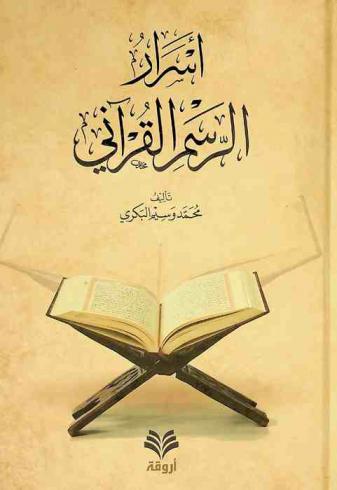 أَسْرَارُ
الرَّسْمِ القُرْآنِي
تَأليفُ
مُحَمَّد وَسِيم البَكري
أروقة